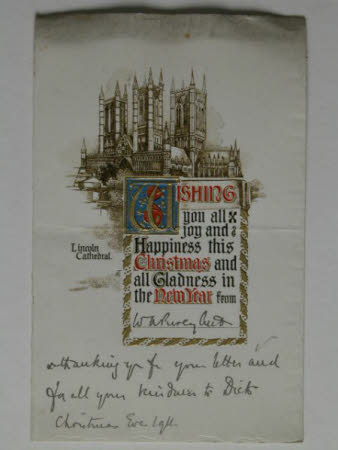 WISHING
you all
joy and
Lincoln
Cathedral.
Happiness this
Christmas and
all Gladness in
the New Year from
& thanking you for your letter and
for all your kindness to Dick
Christmas Eve